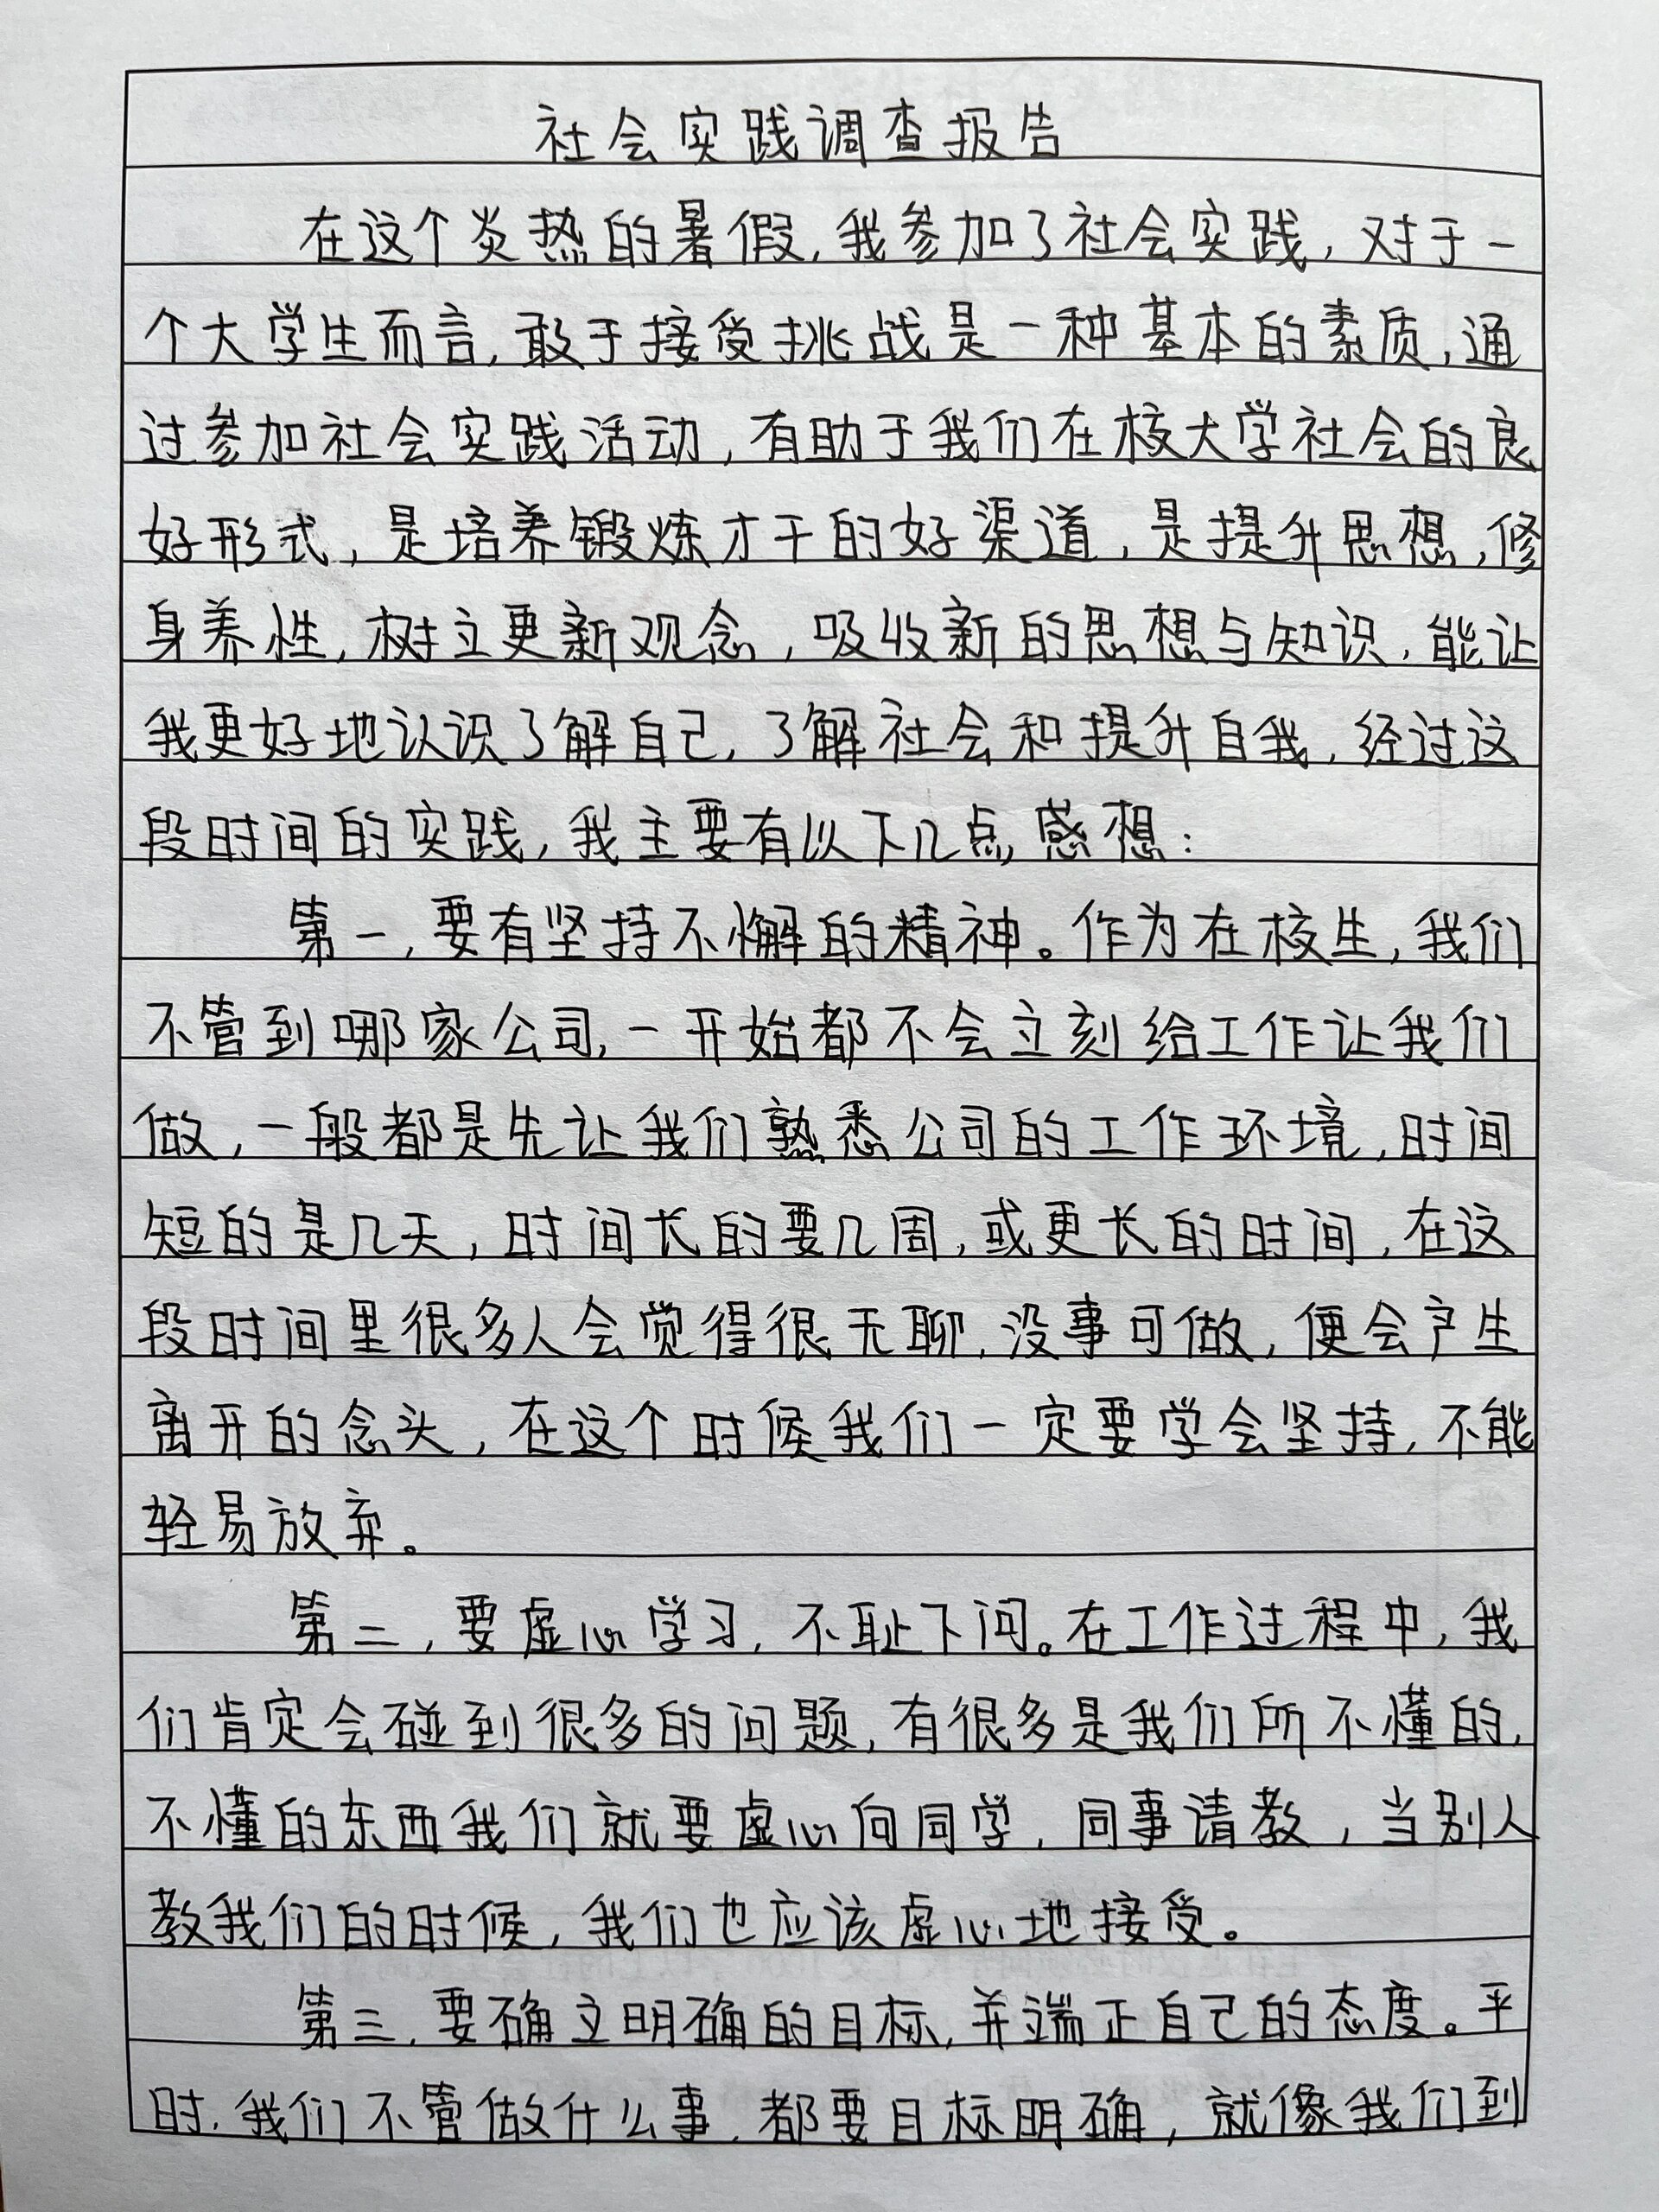 社会实践调查报告
在这个炎热的暑假,我参加了社会实践,对于一
个大学生而言,敢于接受挑战是一种基本的素质,通
过参加社会实践活动,有助于我们在校大学社会的良
好形式,是培养锻炼才干的好渠道,是提升思想,修
身养性,树立更新观念,吸收新的思想与知识,能让
我更好地认识了解自己,了解社会和提升自我,经过这
段时间的实践,我主要有以下几点感想:
第一,要有坚持不懈的精神。作为在校生,我们
不管到哪家公司,一开始都不会立刻给工作让我们
做,一般都是先让我们熟悉公司的工作环境,时间
短的是几天,时间长的要几周,或更长的时间,在这
段时间里很多人会觉得很无聊,没事可做,便会产生
离开的念头,在这个时候我们一定要学会坚持,不能
轻易放弃。
第二,要虚心学习,不耻下问。在工作过程中,我
们肯定会碰到很多的问题,有很多是我们所不懂的,
不懂的东西我们就要虚心向同学,同事请教,当别人
教我们的时候,我们也应该虚心地接受。
第三,要确立明确的目标,并端正自己的态度。平
时,我们不管做什么事,都要目标明确,就像我们到